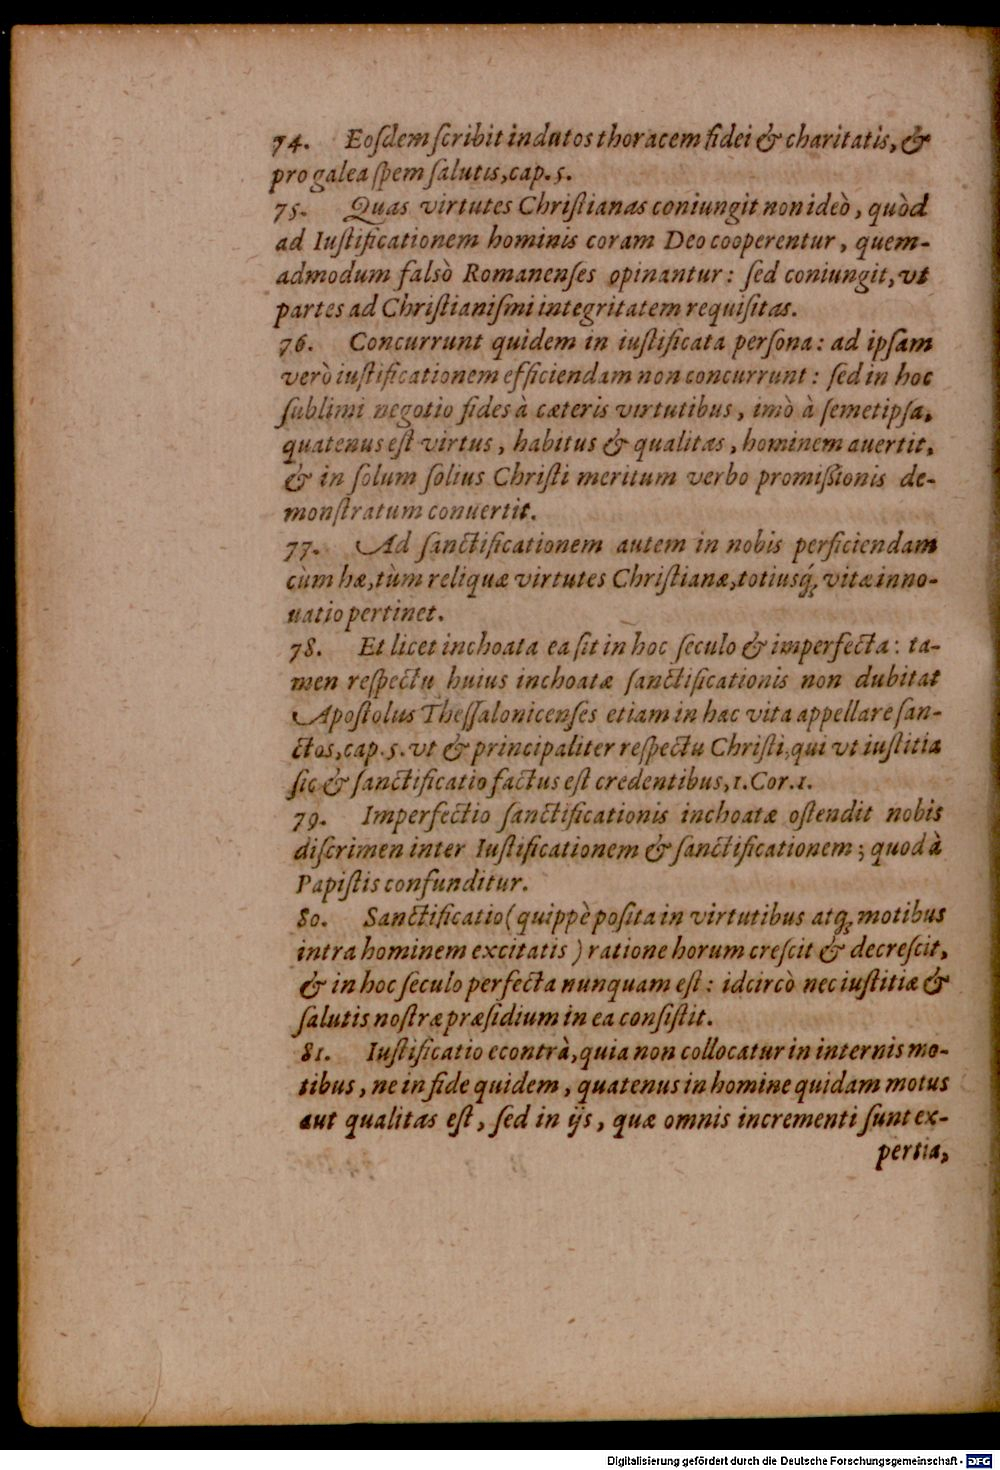 74. Eoſdem ſcribit indutos thoracem fidei & charitatis, &
pro galea ſpem ſalutis, cap. 5.
75. Quas virtutes Chriſtianas coniungit non ideò, quòd
ad Iuſtificationem hominis coram Deo cooperentur, quem-
admodum falsò Romanenſes opinantur: ſed coniungit, vt
partes ad Chriſtianiſmi integritatem requiſitas.
76. Concurrunt quidem in iuſtificata perſona: ad ipſam
verò iuſtificationem efficiendam non concurrunt: ſed in hoc
ſublimi negotio fides à cæteris virtutibus, imò à ſemetipſa,
quatenus eſt virtus, habitus & qualitas, hominem auertit,
& in ſolum ſolius Chriſti meritum verbo promißionis de-
monſtratum conuertit.
77. Ad ſanctificationem autem in nobis perficiendam
cùm hæ, tùm reliquæ virtutes Chriſtianæ, totiusq́ꝫ vitæ inno-
uatio pertinet.
78. Et licet inchoata ea ſit in hoc ſeculo & imperfecta: ta-
men reſpectu huius inchoatæ ſanctificationis non dubitat
Apoſtolus Theſſalonicenſes etiam in hac vita appellare ſan-
ctos, cap. 5. vt & principaliter reſpectu Chriſti, qui vt iuſtitia
ſic & ſanctificatio factus eſt credentibus, 1. Cor. 1.
79. Imperfectio ſanctificationis inchoatæ oſtendit nobis
diſcrimen inter Iuſtificationem & ſanctificationem; quod à
Papiſtis confunditur.
80. Sanctificatio (quippè poſita in virtutibus atqꝫ motibus
intra hominem excitatis) ratione horum creſcit & decreſcit,
& in hoc ſeculo perfecta nunquam eſt: idcircò nec iuſtitiæ &
ſalutis noſtræ præſidium in ea conſiſtit.
81. Iuſtificatio econtrà, quia non collocatur in internis mo-
tibus, ne in fide quidem, quatenus in homine quidam motus
aut qualitas eſt, ſed in ijs, quæ omnis incrementi ſunt ex-
pertia,
Digitalisierung gefördert durch die Deutsche Forschungsgemeinschaft - DFG